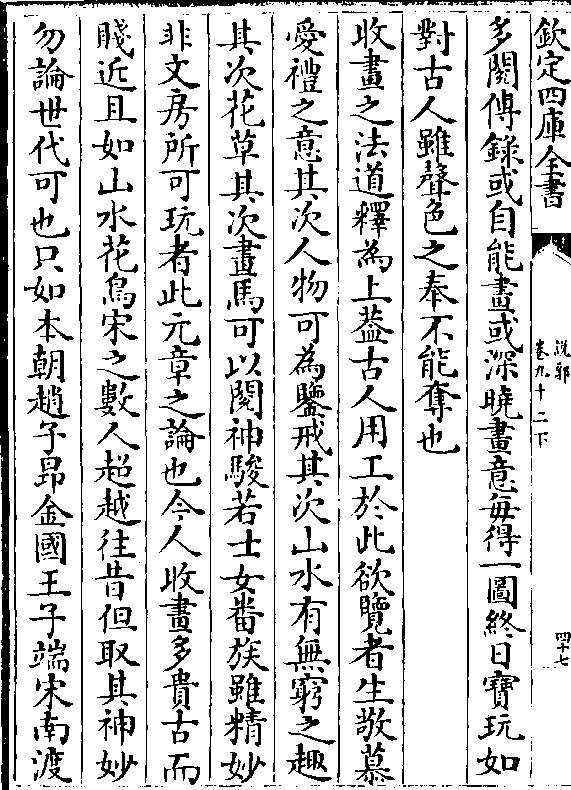 欽定四庫全書
說郛
卷九十二下
四十七
多閱傳錄或自能畫或深曉畫意每得一圖終日寶玩如
對古人雖聲色之奉不能奪也
收畫之法道釋為上葢古人用工於此欲覽者生敬慕
愛禮之意其次人物可為鑒戒其次山水有無窮之趣
其次花草其次畫馬可以閱神駿若士女番族雖精妙
非文房所可玩者此元章之論也今人收畫多貴古而
賤近且如山水花鳥宋之數人超越往昔但取其神妙
勿論世代可也只如本朝趙子昂金國王子端宋南渡